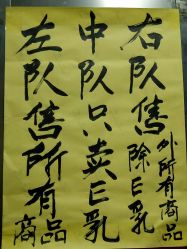 右队售除巨乳外所有商品
中队只卖巨乳
左队售所有商品